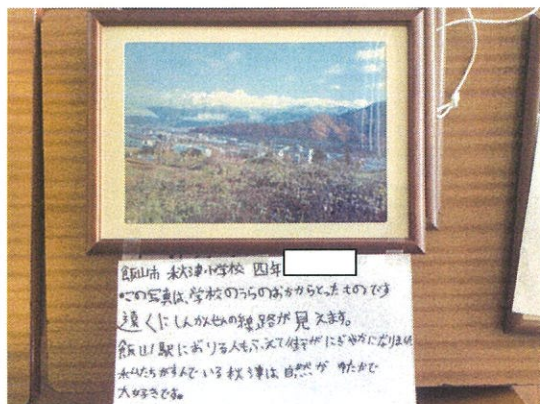 飯山市 秋津小学校 四年
この写真は、学校のうらのおかからとったものです
遠くにしんかんせんの線路が見えます。
飯山駅におりる人もふえて街がにぎやかになりました
私たちがすんでいる秋津は自然がゆたかで
大好きです。